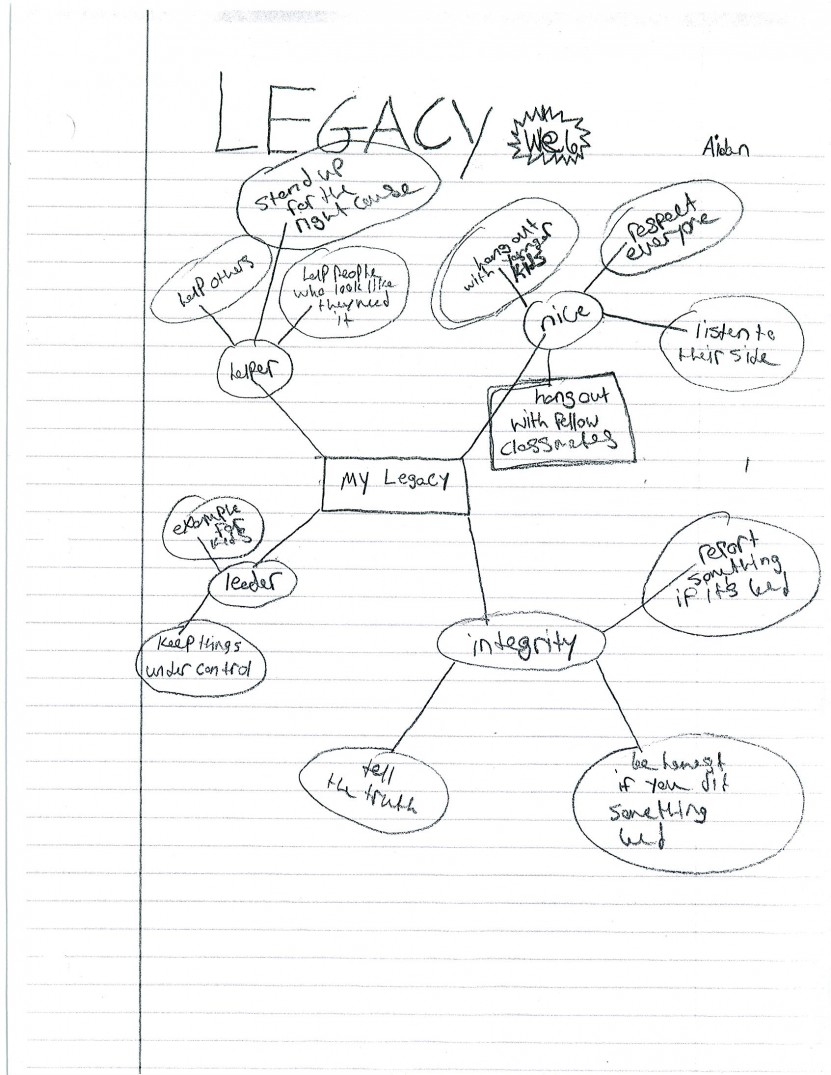 LEGACY
Web
Aidan
stand up
for the
right cause
help others
help people
who look like
they need
it
helper
hang out
with younger
kids
respect
everyone
nice
listen to
their side
hang out
with fellow
classmates
My Legacy
example
for
kids
leader
keep things
under control
integrity
report
something
if it's bad
tell
the truth
be honest
if you did
something
bad